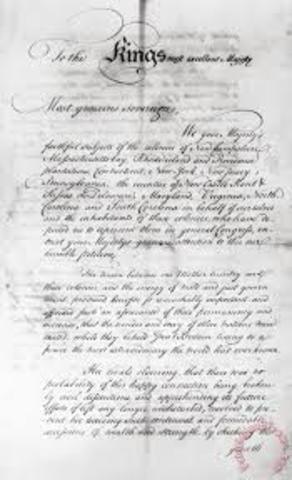 To the Kings most excellent Majesty
Most gracious Sovereign,
We your Majesty's
faithful subjects of the colonies of Newhampshire,
Massachusetts bay, Rhode island and Providence
plantations, Connecticut, New York, New Jersey,
Pennsylvania, the counties of New Castle Kent &
Sussex on Delaware, Maryland, Virginia, North
Carolina and South Carolina in behalf of ourselves
and the inhabitants of these colonies, who have de
puted us to represent them in general Congress, en
treat your Majestys gracious attention to this our
humble petition.
The union between our Mother country and
these colonies, and the energy of mild and just govern
ment, produced benefits so remarkably important and
afforded such an assurance of their permanency and
increase, that the wonder and envy of other Nations were
excited, while they beheld Great Britain riseing to a
power the most extraordinary the world had ever known.
Her rivals observing, that there was no
probability of this happy connection being broken
by civil dissentions, and apprehending its future
effects if left any longer undisturbed, resolved to pre
vent her receiving such continual and formidable
accessions of wealth and strength, by checking the